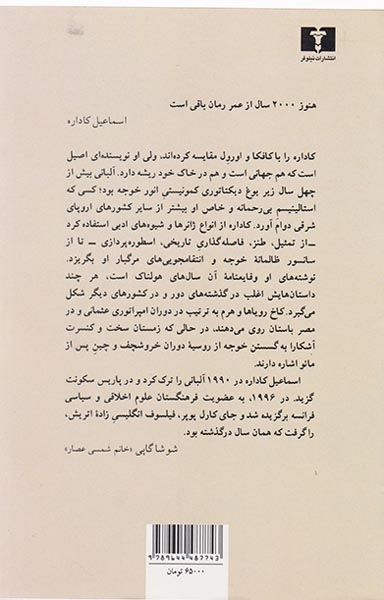 انتشارات نیلوفر
هنوز ۲۰۰۰ سال از عمر رمان باقی است
اسماعیل کاداره
کاداره را با کافکا و اورول مقایسه کرده‌اند، ولی او نویسنده‌ای اصیل
است که هم جهانی است و هم در خاک خود ریشه دارد. آلبانی بیش از
چهل سال زیر یوغ دیکتاتوری کمونیستی انور خوجه بود؛ کسی که
استالینیسم بی‌رحمانه و خاص او بیشتر از سایر کشورهای اروپای
شرقی دوام آورد. کاداره از انواع ژانرها و شیوه‌های ادبی استفاده کرد
ــ از تمثیل، طنز، فاصله‌گذاری تاریخی، اسطوره‌پردازی ــ تا از
سانسور ظالمانهٔ خوجه و انتقامجویی‌های مرگبار او بگریزد.
نوشته‌های او وقایعنامهٔ آن سال‌های هولناک است، هر چند
داستان‌هایش اغلب در گذشته‌های دور و در کشورهای دیگر شکل
می‌گیرد. کاخ رویاها و هرم به ترتیب در دوران امپراتوری عثمانی و در
مصر باستان روی می‌دهند، در حالی که زمستان سخت و کنسرت
آشکارا به گسستن خوجه از روسیهٔ دوران خروشچف و چین پس از
مائو اشاره دارند.
اسماعیل کاداره در ۱۹۹۰ آلبانی را ترک کرد و در پاریس سکونت
گزید. در ۱۹۹۶، به عضویت فرهنگستان علوم اخلاقی و سیاسی
فرانسه برگزیده شد و جای کارل پوپر، فیلسوف انگلیسیِ زادهٔ اتریش،
را گرفت که همان سال درگذشته بود.
شوشا گاپی «خانم شمسی عصار»
9 789644 487743
۶۵۰۰۰ تومان